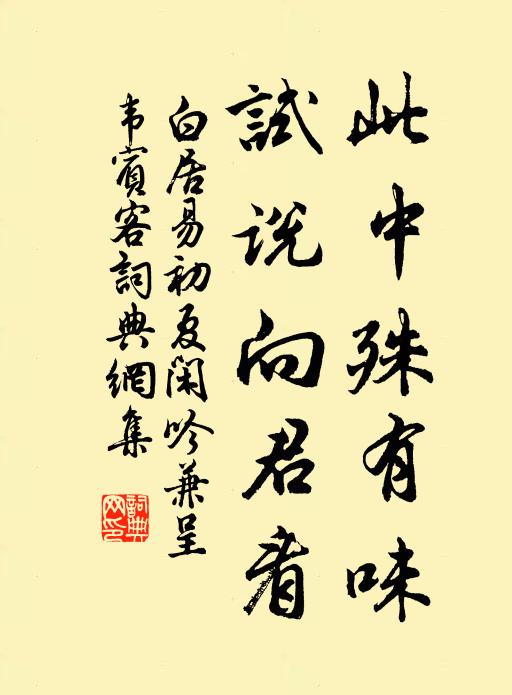 此中殊有味
試说向君看
白居易初夏閑吟兼呈
韦賓客詞典網集
詞典
网印